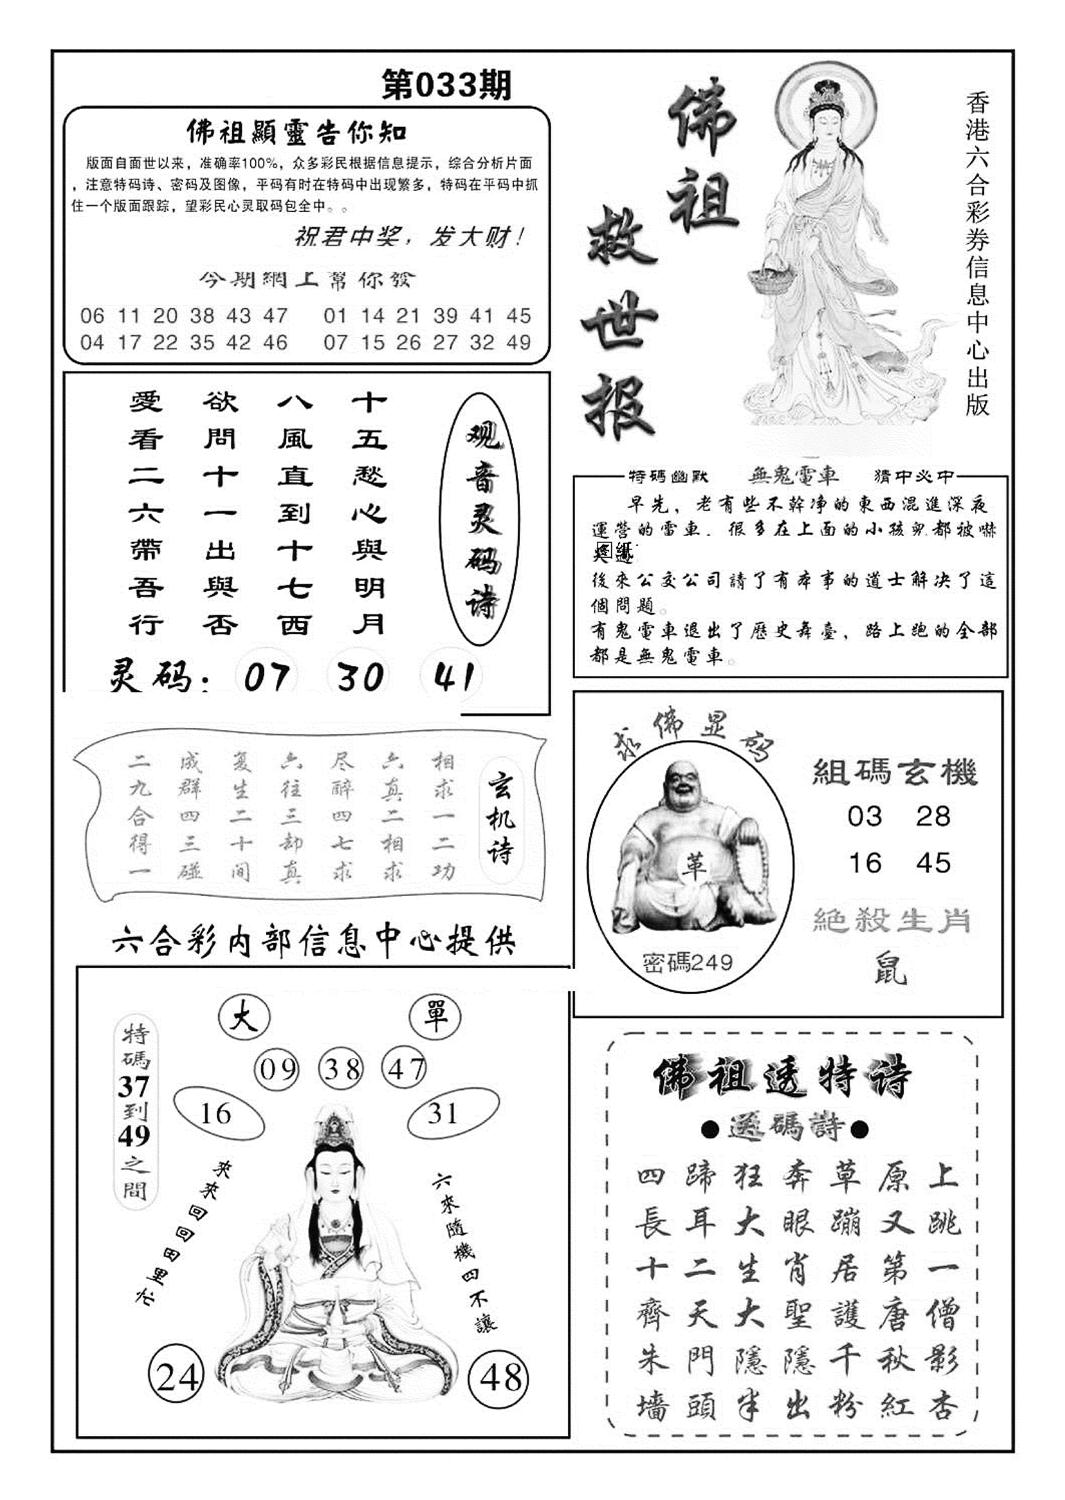 第033期
佛祖顯靈告你知
版面自面世以来，准确率100%，众多彩民根据信息提示，综合分析片面
，注意特码诗、密码及图像，平码有时在特码中出现繁多，特码在平码中抓
住一个版面跟踪，望彩民心灵取码包全中。。
祝君中奖，发大财！
今期網上幫你發
06 11 20 38 43 47 01 14 21 39 41 45
04 17 22 35 42 46 07 15 26 27 32 49
佛祖
救世报
香港六合彩券信息中心出版
观音灵码诗
十五愁心與明月
八風直到十七西
欲問十一出與否
愛看二六帶吾行
灵码：07 30 41
特碼幽默 無鬼電車 猜中必中
早先，老有些不幹净的東西混進深夜
運營的電車．很多在上面的小孩兒都被嚇
後來公交公司請了有本事的道士解决了這
個問題。
有鬼電車退出了歷史舞臺，路上跑的全部
都是無鬼電車。
玄机诗
相求一二功
六真二相求
尽醉四七求
六往三却真
复生二十间
成群四三碰
二九合得一
求佛显码
革
密碼249
組碼玄機
03 28
16 45
絶殺生肖
鼠
六合彩内部信息中心提供
大 單
09 38 47
16 31
特碼37到49之間
來來回回田里忙
六來隨機四不讓
24 48
佛祖透特诗
●送碼詩●
四蹄狂奔草原上
長耳大眼蹦又跳
十二生肖居第一
齊天大聖護唐僧
朱門隱隱千秋影
墻頭半出粉紅杏